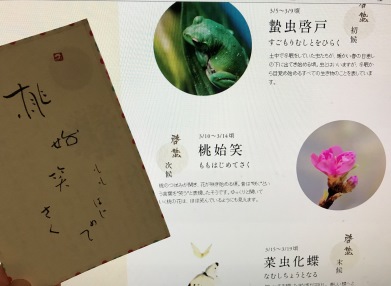 3/5〜3/9頃
蟄虫啓戸
すごもりむしとをひらく
初候
土中で冬眠をしていた虫たちが、暖かい春の日差し
の下に出てき始める頃。虫とはいいますが、冬眠か
ら目覚め始めるすべての生き物のことを表していま
す。
啓蟄
次候
3/10〜3/14頃
桃始笑
ももはじめてさく
桃のつぼみが開き、花が咲き始める頃。昔は"咲く"とい
う言葉を"笑う"と表現したそうです。
啓蟄
末候
3/15〜3/19頃
菜虫化蝶
なむしちょうとなる
桃
始
笑
さく
もも はじめて